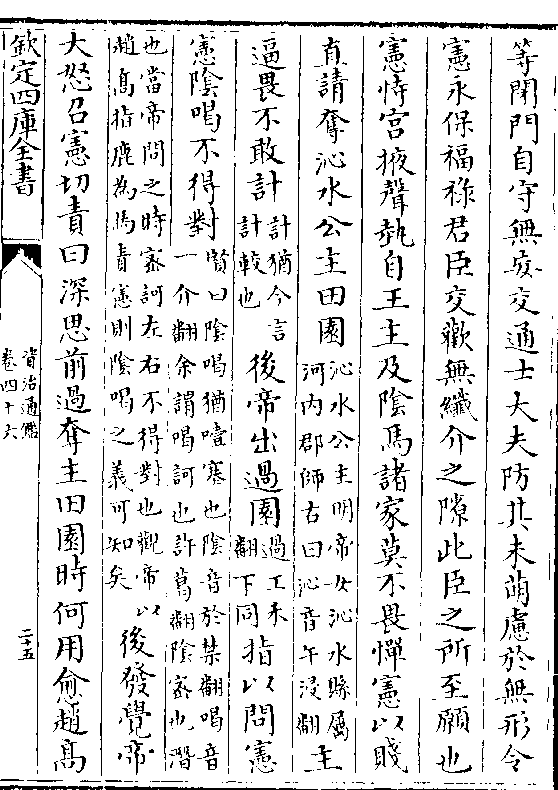 等閉門自守無妄交通士大夫防其未萌慮於無形令
憲永保福祿君臣交歡無纖介之隙此臣之所至願也
憲恃宮掖聲埶自王主及陰馬諸家莫不畏憚憲以賤
直請奪沁水公主田園沁水公主明帝女沁水縣屬河内郡師古曰沁音午浸翻主
逼畏不敢計計猶今言計較也後帝出過園過工禾翻下同指以問憲
憲陰喝不得對賢曰陰喝猶噎塞也陰音於禁翻喝音一介翻余謂喝訶也許葛翻陰宻也潛
也當帝問之時宻訶左右不得對也觀帝以趙髙指鹿為馬責憲則陰喝之義可知矣後發覺帝
大怒召憲切責曰深思前過奪主田園時何用愈趙髙
欽定四庫全書
資治通鑑
卷四十六
二十五